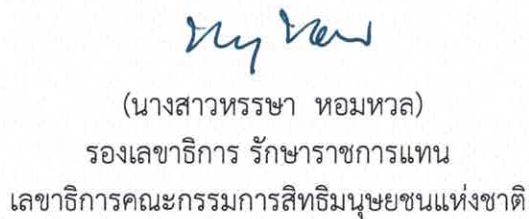 (นางสาวหรรษา หอมหวล)
รองเลขาธิการ รักษาราชการแทน
เลขาธิการคณะกรรมการสิทธิมนุษยชนแห่งชาติ